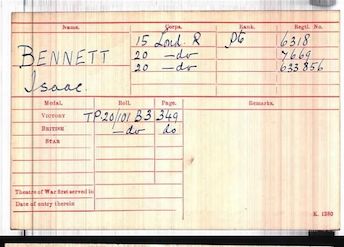 Name. Corps. Rank. Regtl. No.
BENNETT 15 Lond. R Pte 6318
20 —do— 7669
Isaac. 20 —do— 633856
Medal. Roll. Page. Remarks.
VICTORY TP20/101 B3 349
BRITISH —do— do
STAR
Theatre of War first served in
Date of entry therein
K. 1380